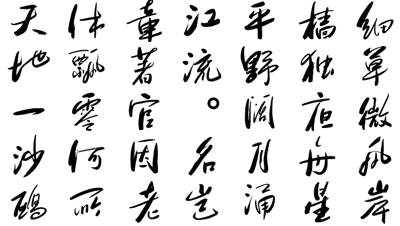 细草微风岸
樯独夜舟星
平野阔月涌
江流。名岂
章著官因老
休飘零何所
天地一沙鸥